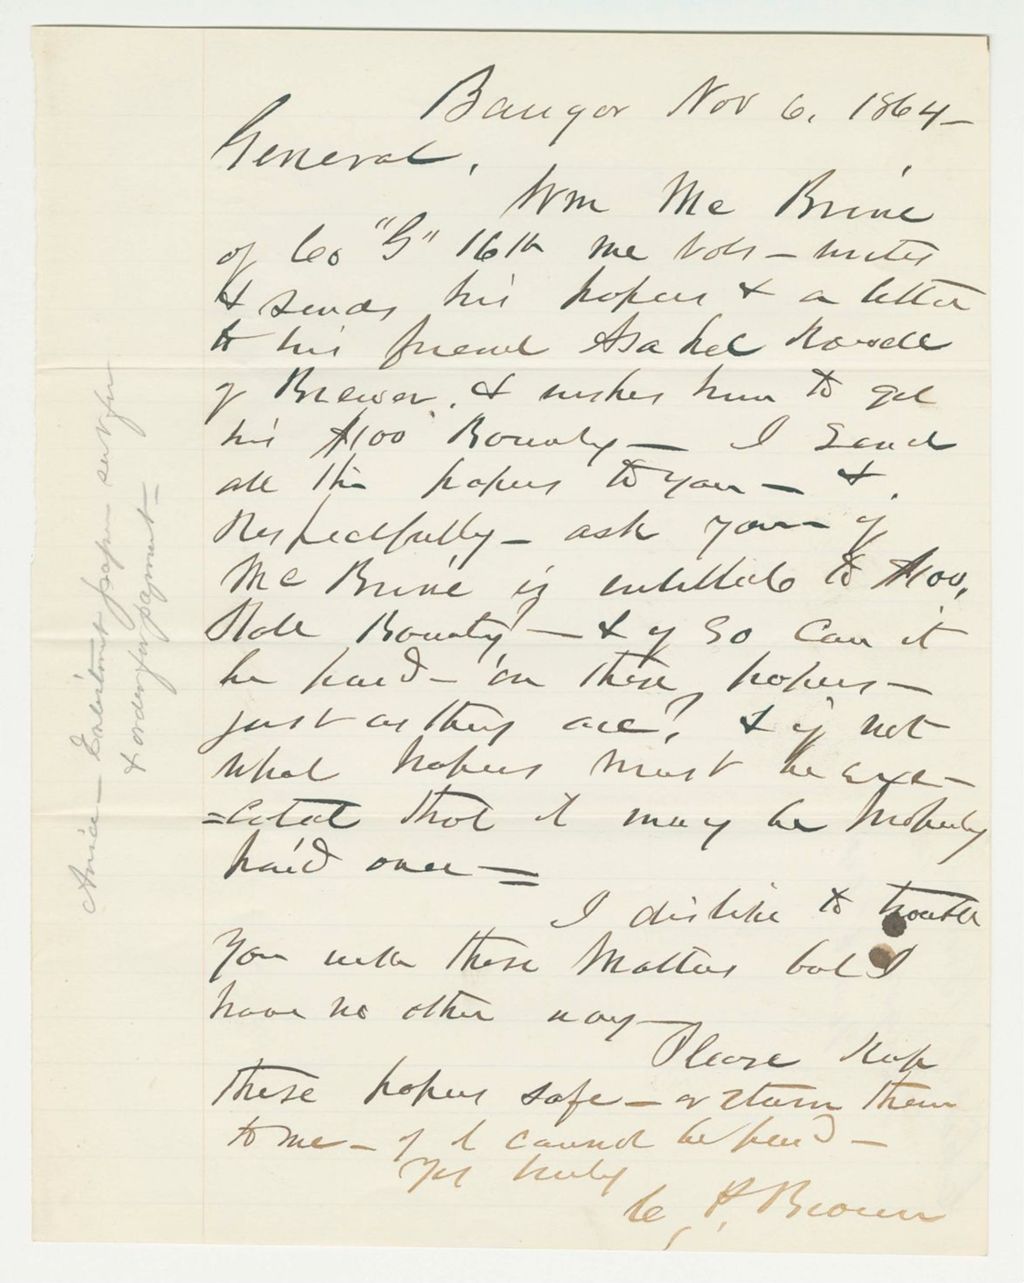 Bangor Nov 6, 1864 –
General,
Wm McBrine
of Co "G" 16th me vols – writes
& sends his papers & a letter
to his friend Asahel
of Brewer, & wishes him to get
his $100 Bounty – I send
all the papers to you – &
Respectfully – ask you – if
McBrine is entitled to $100,
State Bounty – & if so can it
be paid – on these papers –
just as they are? & if not
what papers must be exe-
=cuted that it may be properly
paid over =
I dislike to trouble
you with these matters but I
have no other way –
Please keep
these papers safe – or return them
to me – if it cannot be paid –
Yrs truly
C. P. Brown
Enlistment paper sent for
& order for payment –